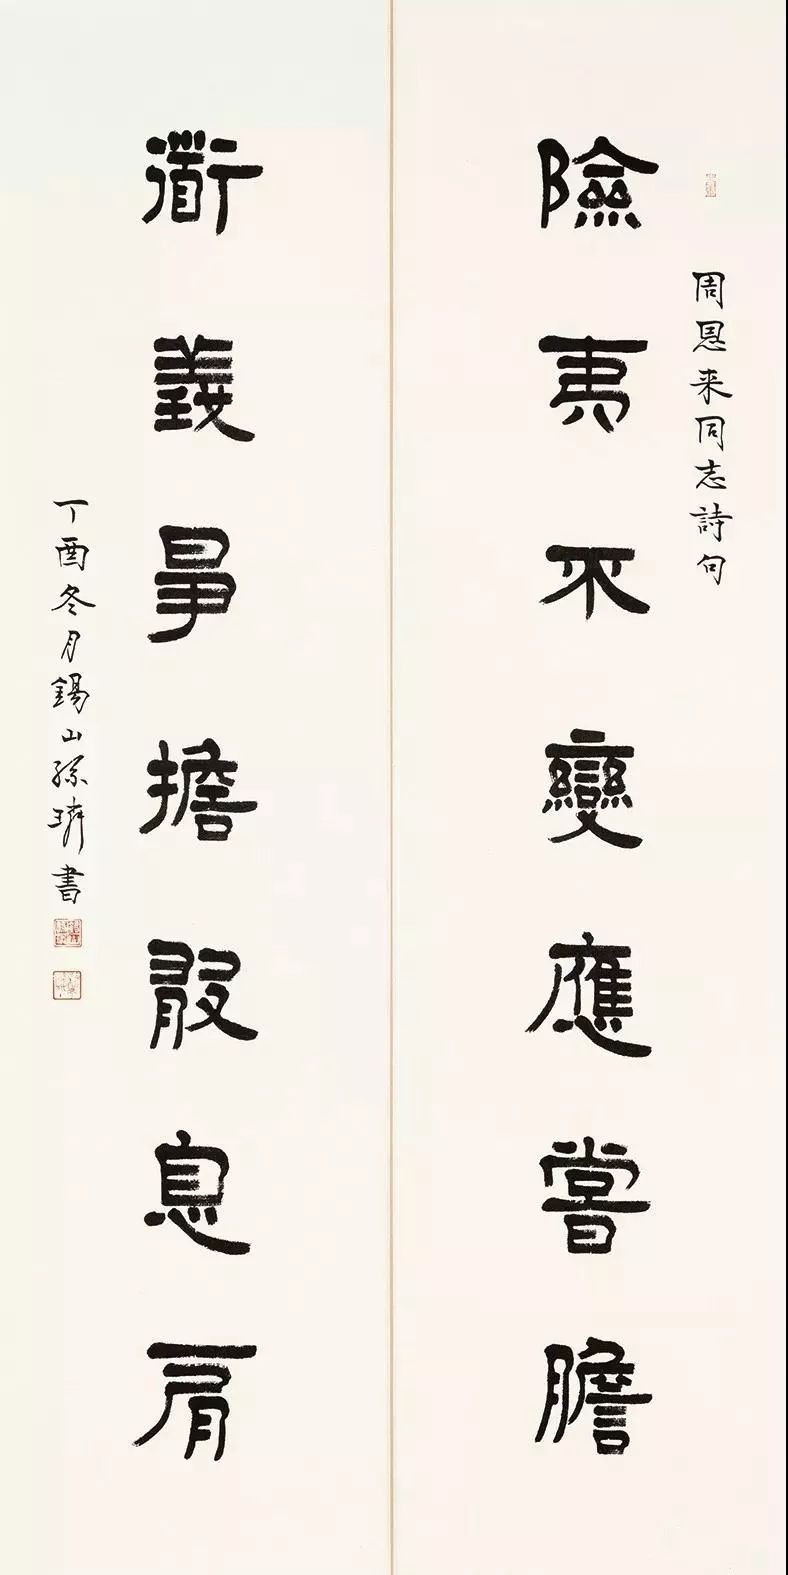 周恩来同志詩句
險夷不變應嘗膽
衜義爭擔敢息肩
丁酉冬月錫山孫書